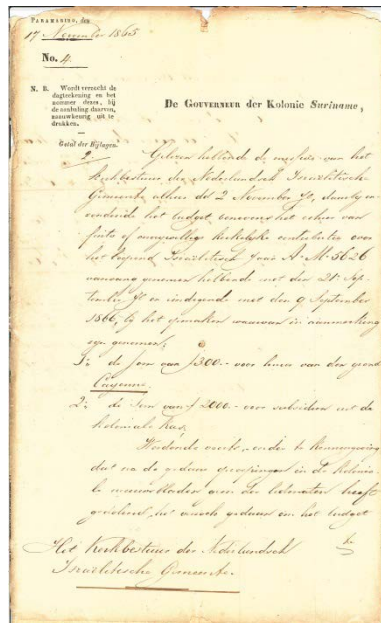 PARAMARIBO, den
17 November 1865
No. 4.
N. B. Wordt verzocht de
dagteekening en het
nommer dezes, bij
de aanhaling daarvan,
naauwkeurig uit te
drukken.
Getal der Bijlagen.
2.
De GOUVERNEUR der Kolonie Suriname,
Gelezen hebbende de missive van het
Kerkbestuur der Nederlandsch Israelitische
Gemeente alhier dd 2 November jl,
het budget benevens het van
of vrijwillige kerkelijke contributie over
het loopend Israelitisch Jaar A. M. 5626
aanvang genomen hebbende met den 21 Sep-
tember jl en eindigende met den 9 September
1866, bij het opmaken waarvan in aanmerking
zijn genomen;
1: de som van f 300.- voor huur van den grond
Cayenne.
2: de som van f 2000.- voor subsidien uit de
Koloniale Kas,
dat na de gedane in de Kolonia-
le nieuwsbladen
het budget
Het Kerkbestuur der Nederlandsch
Israelitische Gemeente.